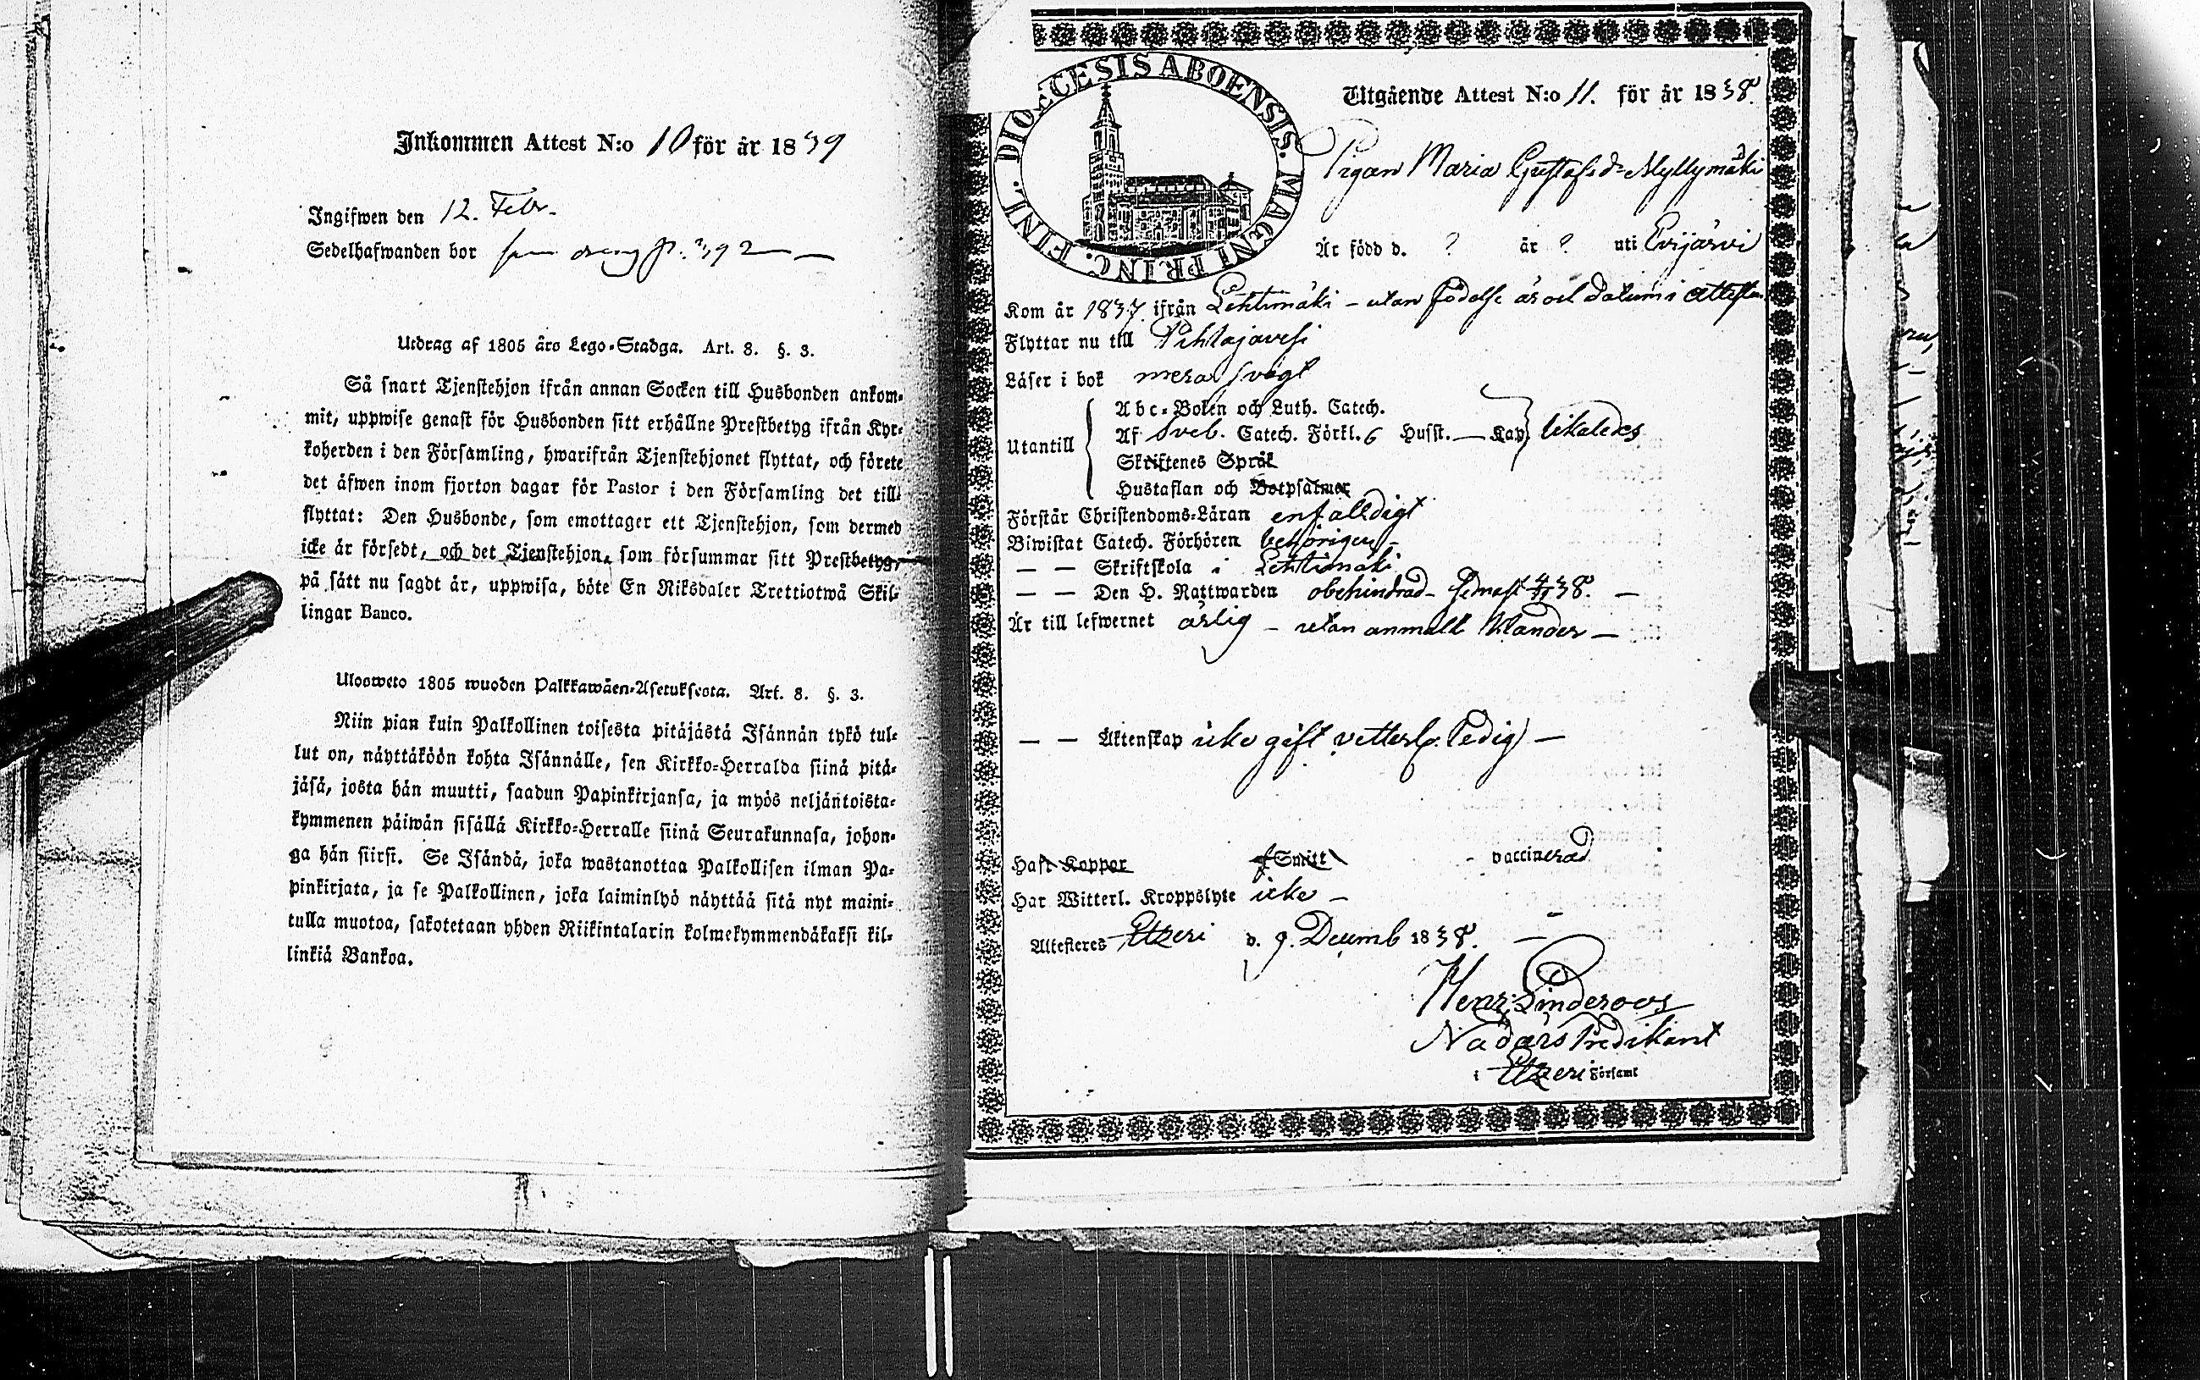 Inkommen Attest N:o 10 för år 1839
Ingifwen den 12. Febr.
Sedelhafwanden bor
Utdrag af 1805 års Lego-Stadga. Art. 8. §. 3.
Så snart Tjenstehjon ifrån annan Socken till Husbonden ankom-
mit, uppwise genast för Husbonden sitt erhållne Prestbetyg ifrån Kyr-
koherden i den Församling, hwarifrån Tjenstehjonet flyttat, och förete
det äfwen inom fjorton dagar för Pastor i den Församling det till-
flyttat: Den Husbonde, som emottager ett Tjenstehjon, som dermed
icke är försedt, och det Tjenstehjon, som försummar sitt Prestbetyg,
på sätt nu sagdt är, uppwisa, böte En Riksdaler Trettiotwå Skil-
lingar Banco.
Ulosweto 1805 wuoden Palkkawäen-Asetuksesta. Art. 8. §. 3.
Niin pian kuin Palkollinen toisesta pitäjästä Isännän tykö tul-
lut on, näyttäköön kohta Isännälle, sen Kirkko-Herralda siinä pitä-
jäsä, josta hän muutti, saadun Papinkirjansa, ja myös neljäntoista-
kymmenen päiwän sisällä Kirkko-Herralle siinä Seurakunnasa, johon-
ga hän siirsi. Se Isändä, joka wastanottaa Palkollisen ilman Pa-
pinkirjata, ja se Palkollinen, joka laiminlyö näyttää sitä nyt maini-
tulla muotoa, sakotetaan yhden Riikintalarin kolmekymmendäkaksi kil-
linkiä Bankoa.
DIOECESIS ABOENSIS. MAGNI PRINC. FINL.
Utgående Attest N:o 11. för år 1838.
Pigan Maria Gustafsd:r Myllymäki
Är född d. ? år ? uti Evijärvi
Kom år 1837 ifrån Lehtimäki – utan födelse år och datum i attesten
Flyttar nu till Pihlajavesi
Läser i bok mera svagt
Utantill
Abc-Boken och Luth. Catech.
Af Sveb. Catech. Förkl. 6 Husst. — Kap. likaledes
Skriftenes Språk
Hustaflan och Botpsalmer
Förstår Christendoms-Läran enfalldigt
Biwistat Catech. Förhören behörigen –
— — Skriftskola i Lehtimäki
— — Den H. Nattwarden obehindrad – senast 4/11 38. —
Är till lefwernet ärlig – utan anmält klander —
— — Äktenskap icke gift vetterl. ledig —
Haft Koppor Smitt vaccinerad
Har Witterl. Kroppslyte icke –
Attesteres Etzeri d. 9. Decemb 1838. —
Henr. Linderoos
Nådårs Predikant
i Etzeri Församl